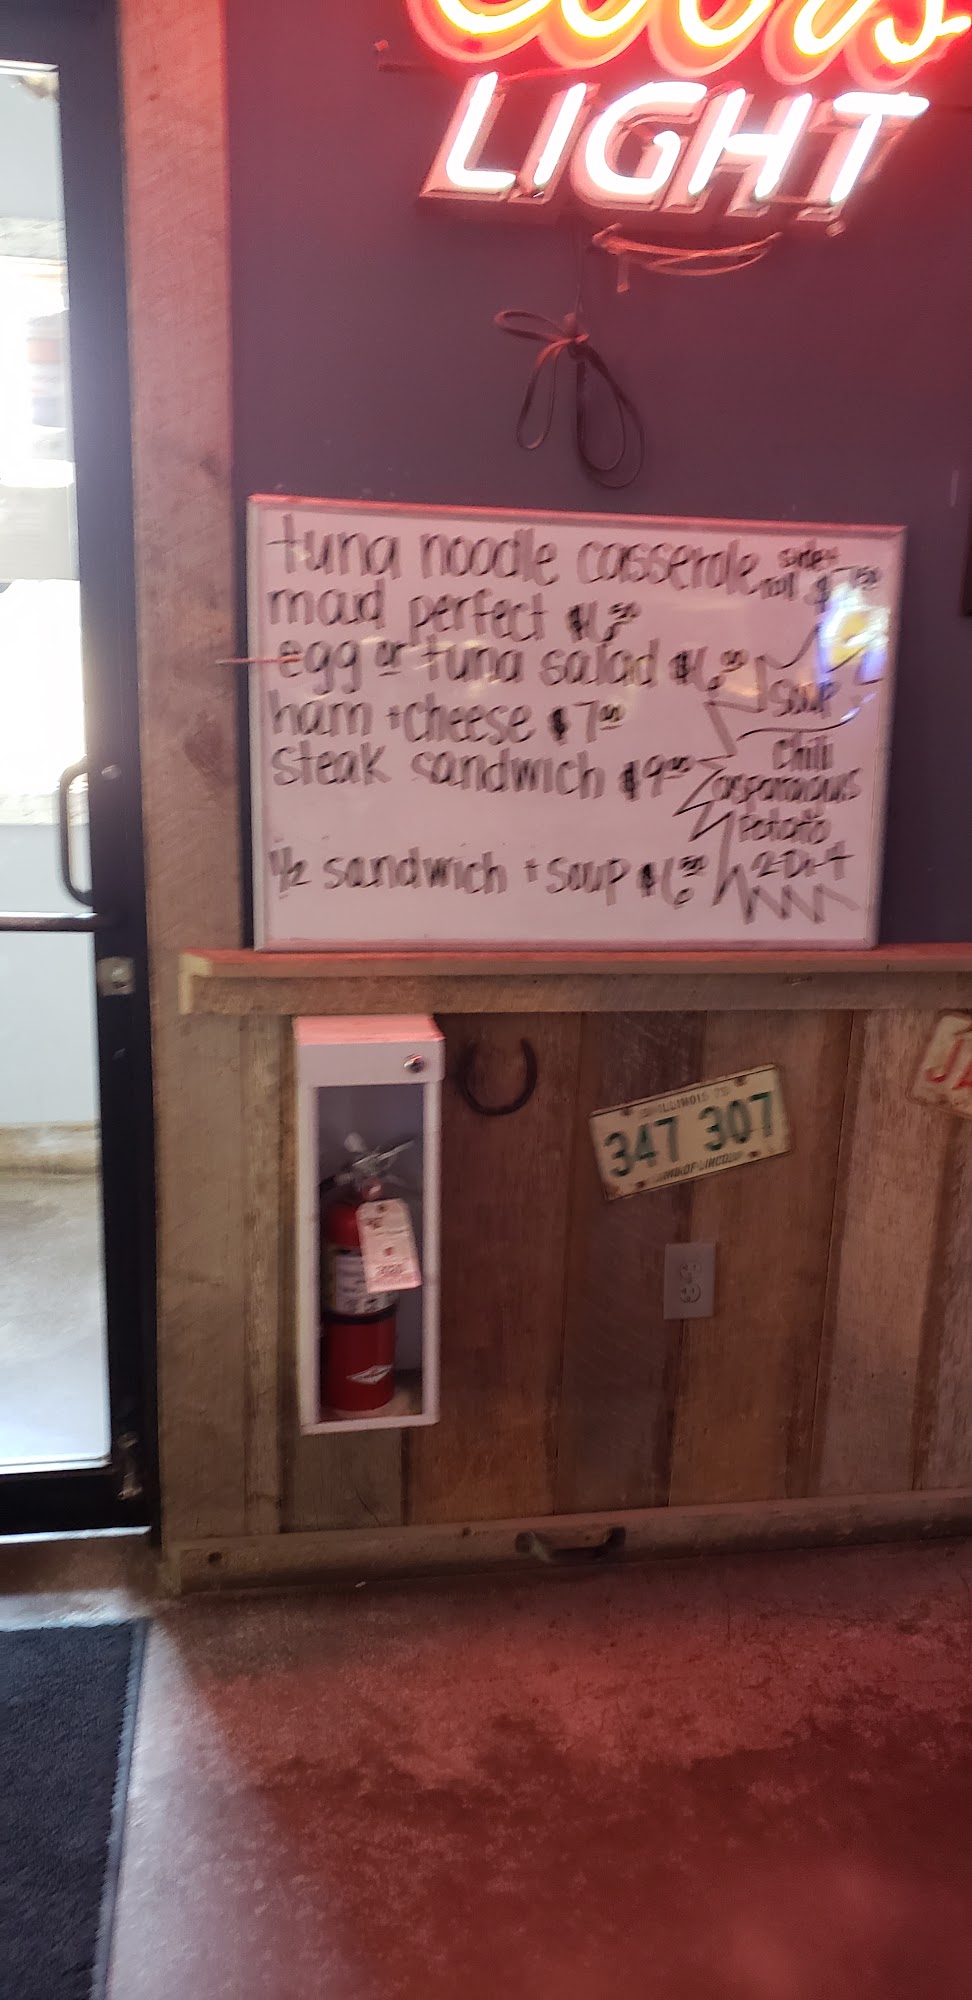 Coors
LIGHT
tuna noodle casserole side + roll $7.50
maid perfect $6.50
egg or tuna salad $6.00
ham + cheese $7.00
steak sandwich $9.00
1/2 sandwich + soup $6.50
Soup
Chili
asparagus
Potato
ILLINOIS 75
347 307
LAND OF LINCOLN